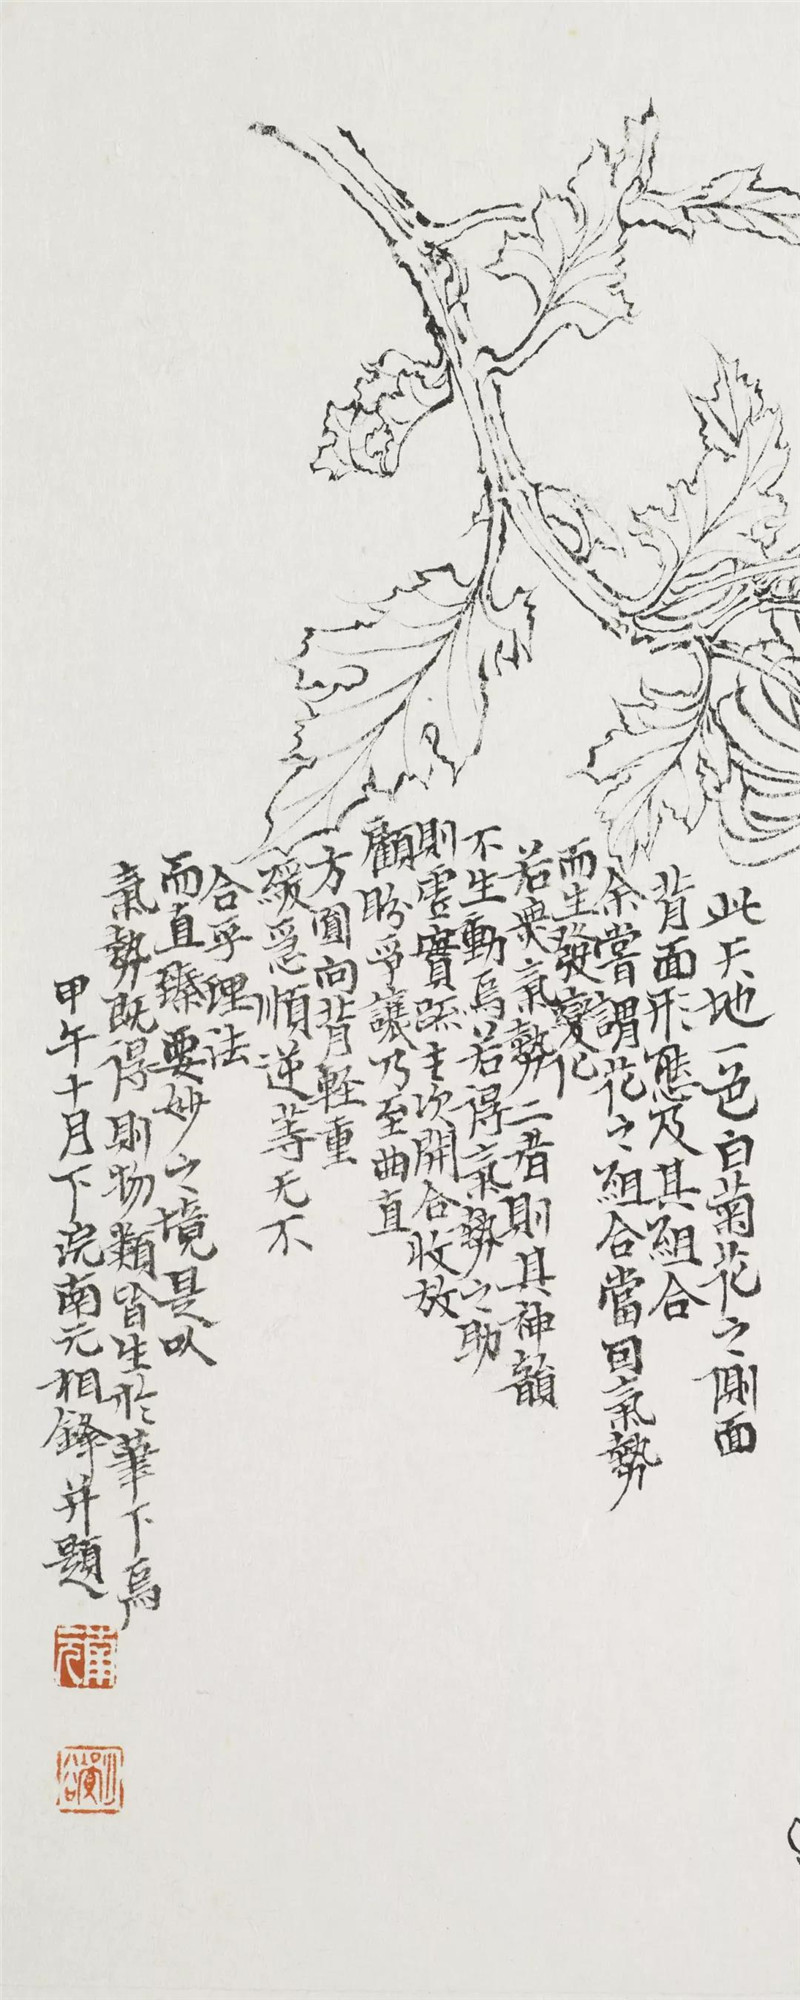 此天地一色白菊花之側面
背面形態及其組合
余嘗謂花之組合當因氣勢
而生發變化
若無氣勢二者則其神韻
不生動焉若得氣勢之助
則虛實疏主次開合收放
顧盼爭讓乃至曲直
方圓向背輕重
緩急順逆等无不
合乎理法
而直臻要妙之境是以
氣勢既得則物類皆生於筆下焉
甲午十月下浣南元相鋒并題
南元